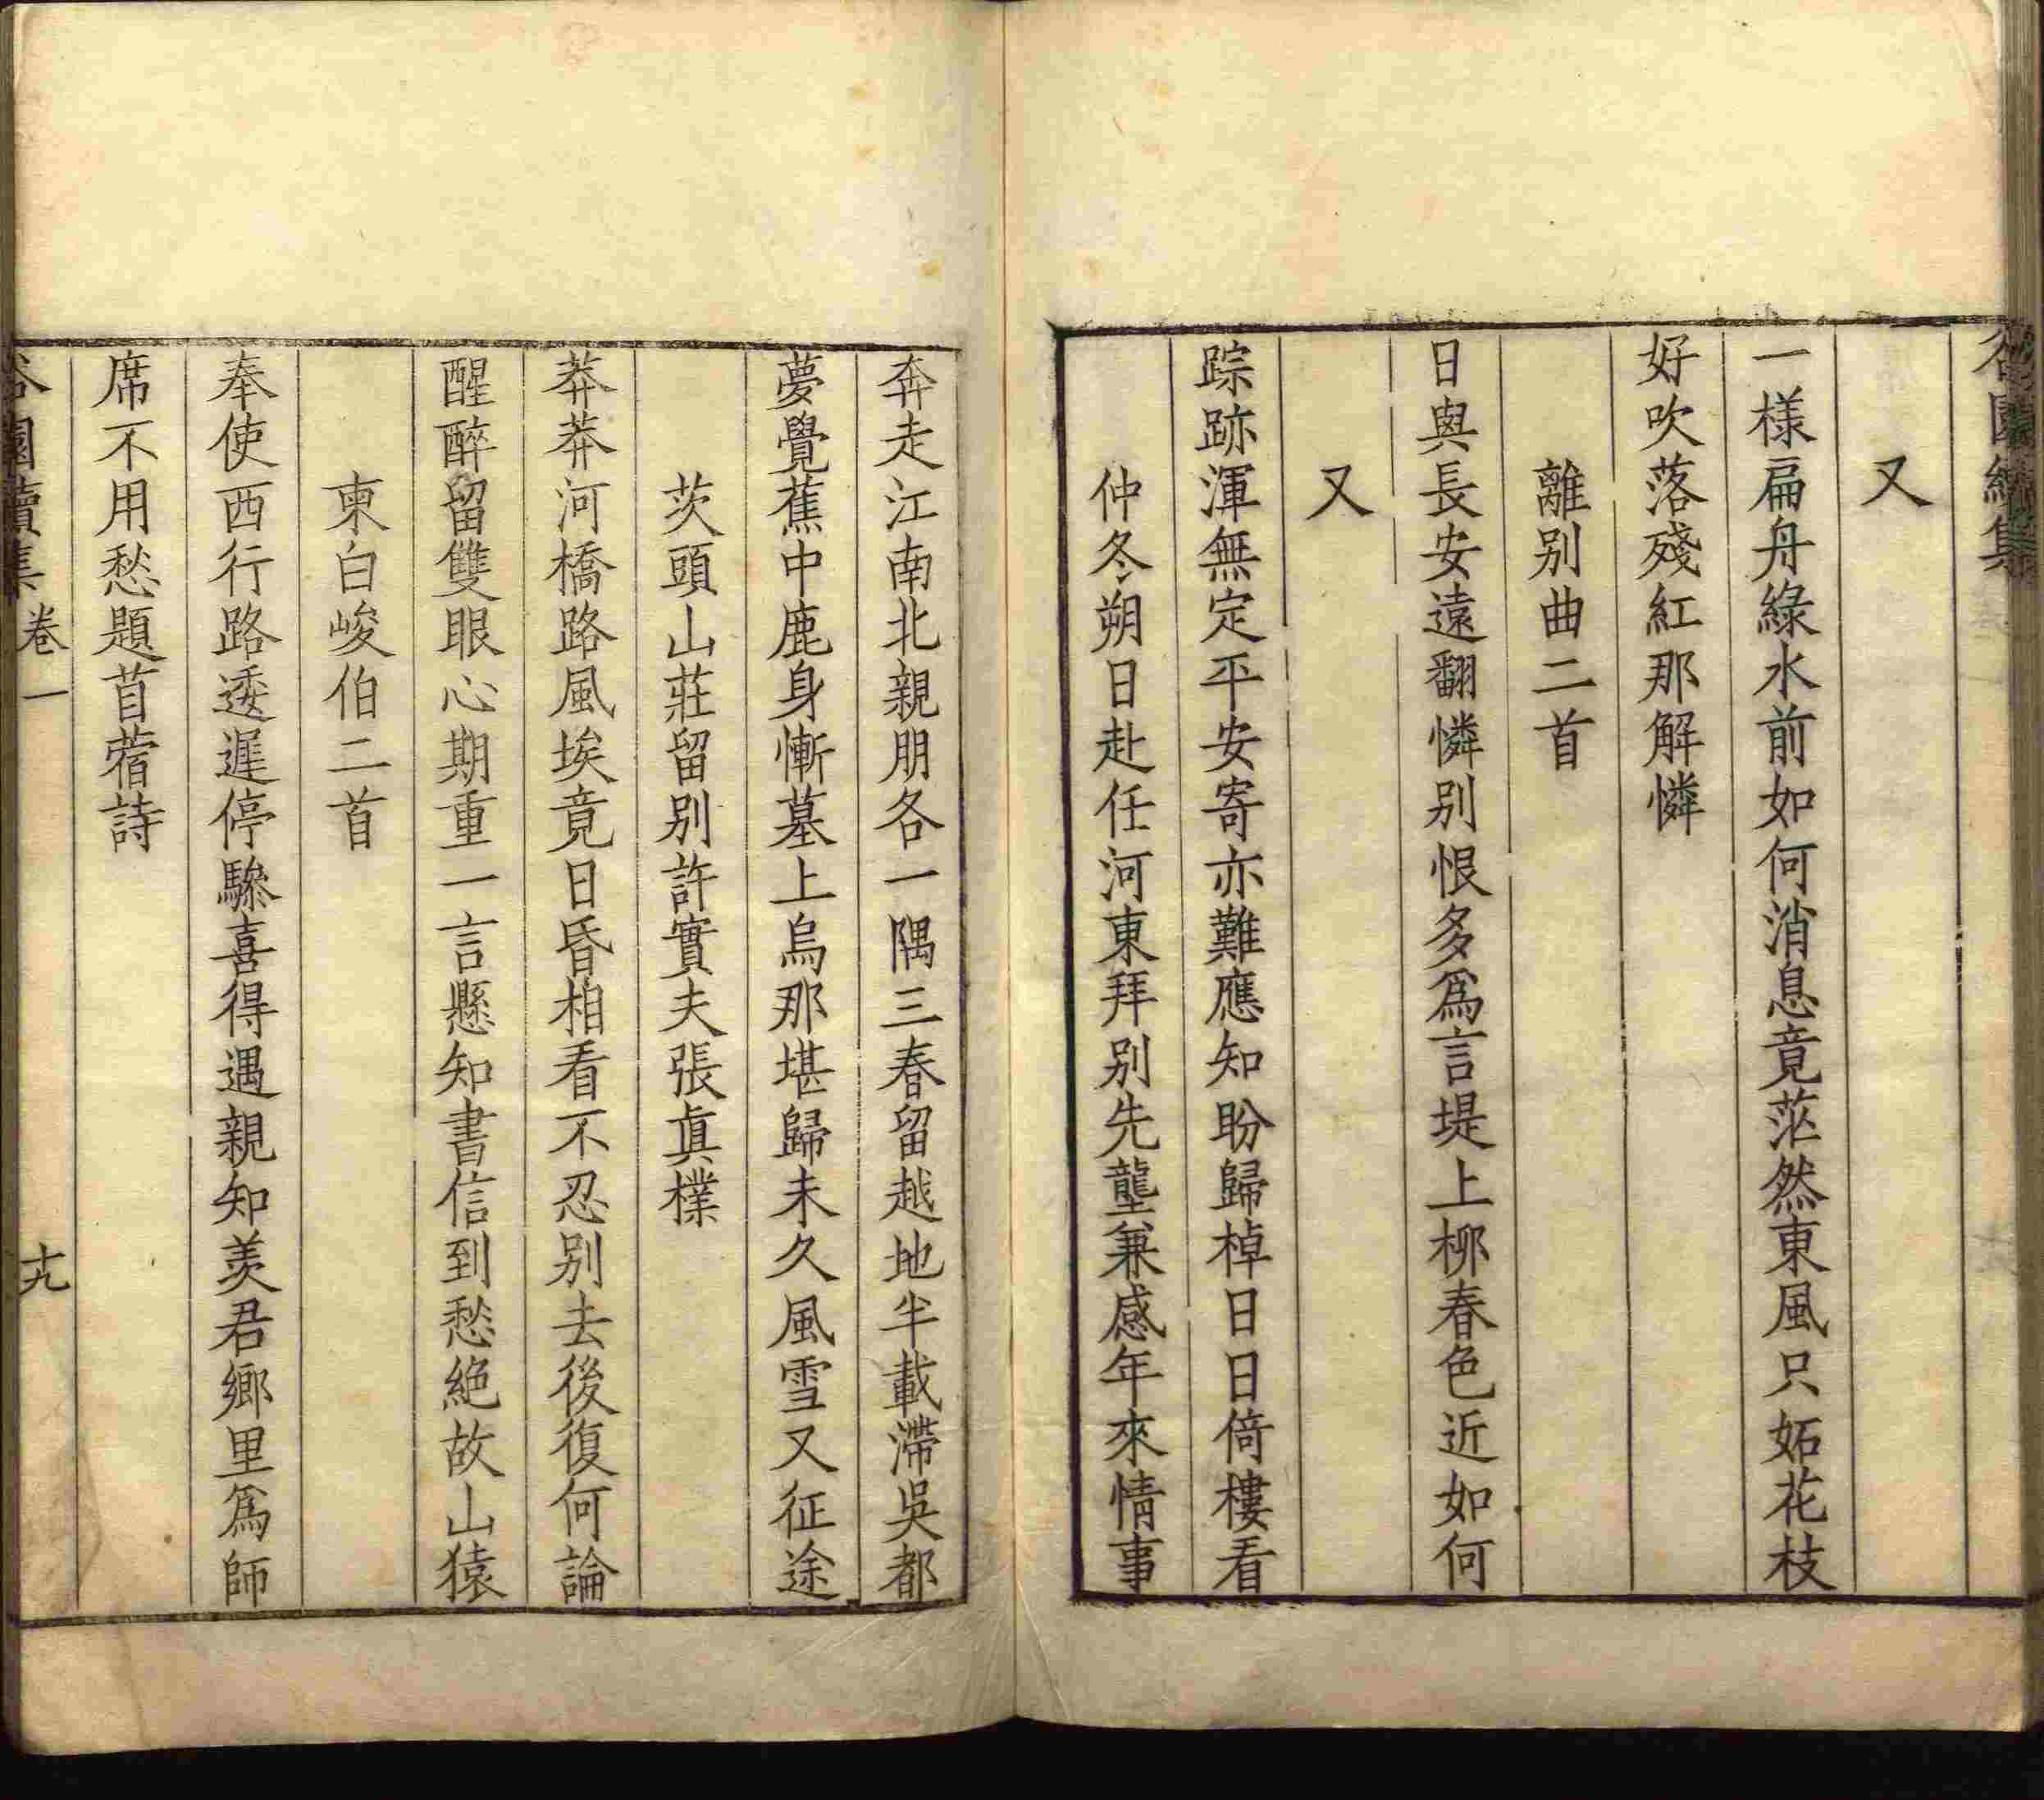 又
一樣扁舟綠水前如何消息竟茫然東風只妬花枝
好吹落殘紅那解憐
離別曲二首
日與長安遠翻憐別恨多爲言堤上柳春色近如何
又
踪跡渾無定平安寄亦難應知盼歸棹日日倚樓看
仲冬朔日赴任河東拜別先壟兼感年來情事
奔走江南北親朋各一隅三春留越地半載滯吳都
夢覺蕉中鹿身慚墓上烏那堪歸未久風雪又征途
茨頭山莊留別許實夫張眞樸
莽莽河橋路風埃竟日昏相看不忍別去後復何論
醒醉留雙眼心期重一言懸知書信到愁絕故山猿
柬白峻伯二首
奉使西行路逶遲停驂喜得遇親知羨君鄉里爲師
席不用愁題苜蓿詩
園續集 卷一 十九